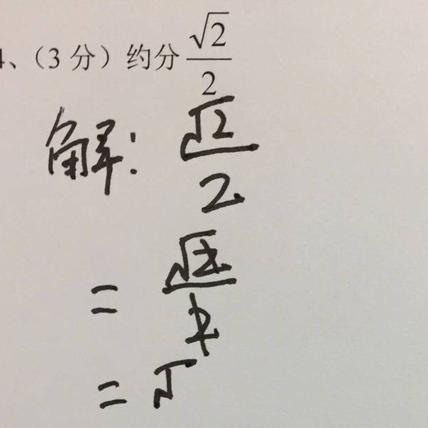 4、（3分）约分 √2/2
解：√2/2
= √2/2
= √